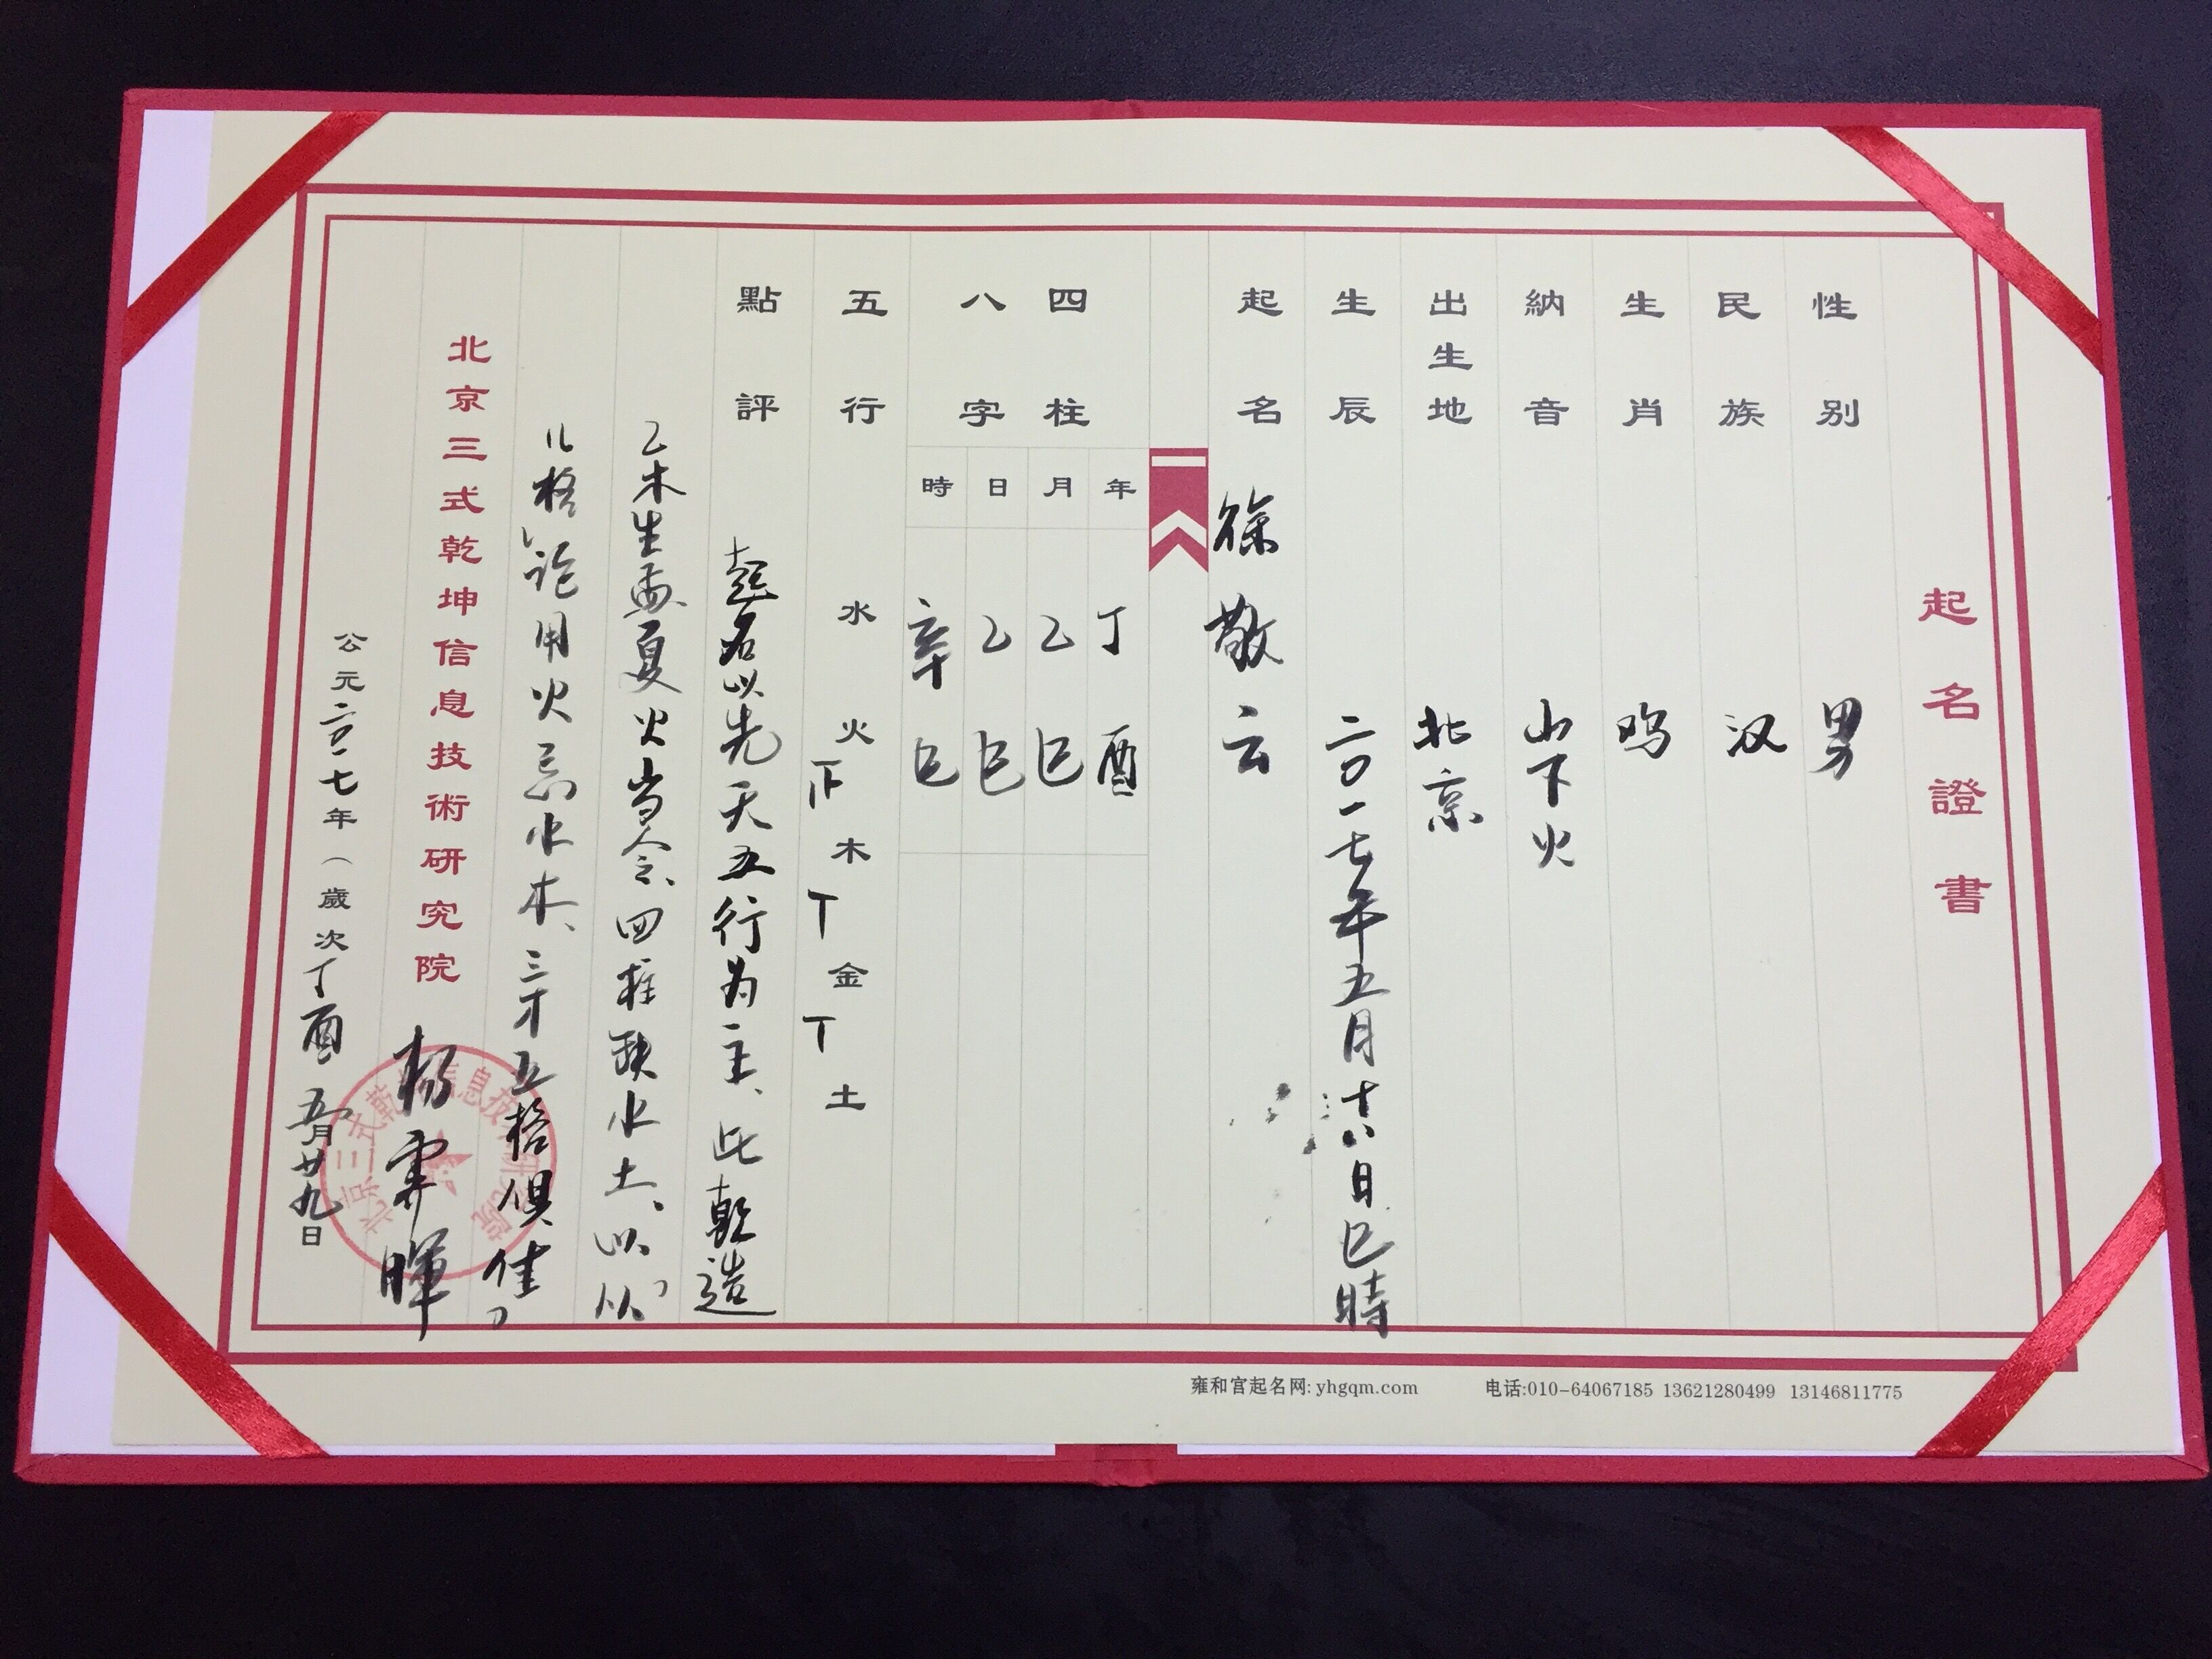 起名證書
性别 男
民族 汉
生肖 鸡
納音 山下火
出生地 北京
生辰 二〇一七年五月十八日巳時
起名 徐敬云
四柱八字
年 丁酉
月 乙巳
日 乙巳
時 辛巳
五行 水 火 正 木 丅 金 丅 土
點評 起名以先天五行为主、此乾造
乙木生孟夏火当令、四柱缺水土、以从
儿格论用火忌水木、三才五格俱佳
北京三式乾坤信息技術研究院 杨霁暉
公元二〇一七年（歲次丁酉 五月廿九日
雍和宫起名网: yhgqm.com 电话:010-64067185 13621280499 13146811775